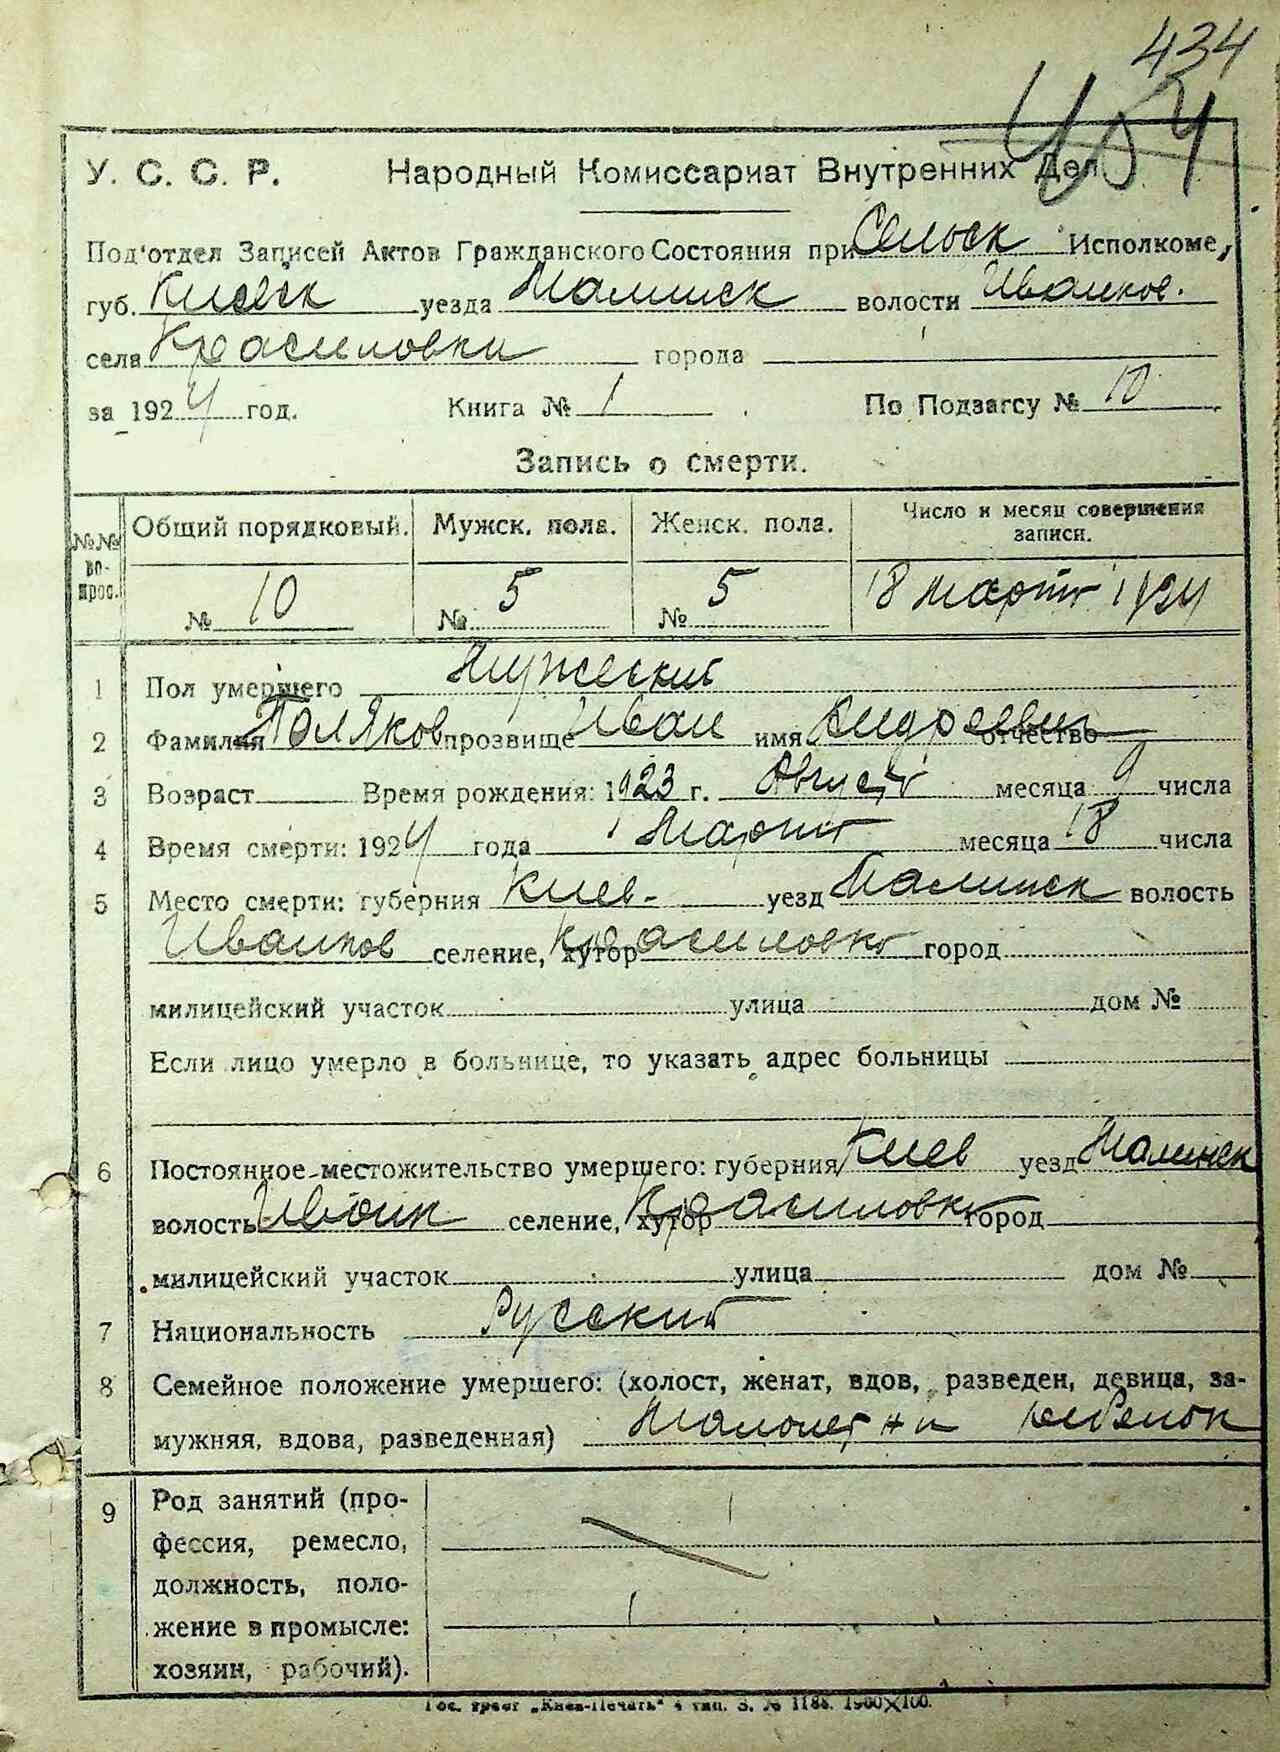 434
404
У. С. С. Р. Народный Комиссариат Внутренних Дел
Под'отдел Записей Актов Гражданского Состояния при Сельск Исполкоме,
губ. Киевск уезда Малинск волости Иванков.
села Красиловки города
за 1924 год. Книга № 1 По Подзагсу № 10
Запись о смерти.
№№ во-прос. Общий порядковый. Мужск. пола. Женск. пола. Число и месяц совершения записи.
№ 10 № 5 № 5 18 март 1924
1 Пол умершего Мужеский
2 Фамилия Поляков прозвище Иван имя Андреевич отчество
3 Возраст Время рождения: 1923 г. Август месяца 9 числа
4 Время смерти: 1924 года Март месяца 18 числа
5 Место смерти: губерния Киев- уезд Малинск волость
Иванков селение, хутор Красиловка город
милицейский участок улица дом №
Если лицо умерло в больнице, то указать адрес больницы
6 Постоянное местожительство умершего: губерния Киев уезд Малинск
волость Иванк селение, хутор Красиловка город
милицейский участок улица дом №
7 Национальность Русский
8 Семейное положение умершего: (холост, женат, вдов, разведен, девица, за-
мужняя, вдова, разведенная) Малолетн ребенок
9 Род занятий (про-
фессия, ремесло,
должность, поло-
жение в промысле:
хозяин, рабочий).
Гос. трест „Киев-Печать“ 4 тип. З. № 1188. 1900×100.